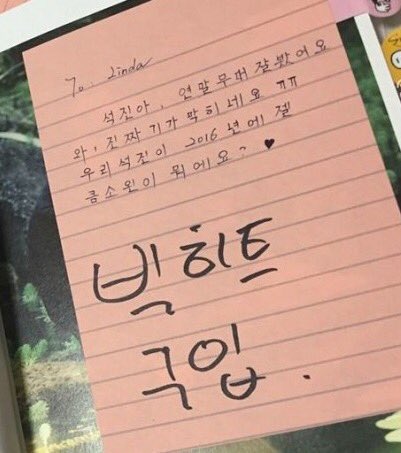 To. Linda
석진아, 연말무대 잘 봤어요
와, 진짜 기가 막히네요 ㅠㅠ
우리 석진이 2016년에 젤
큼소원이 뭐에요? ♥
빅히트
구입.